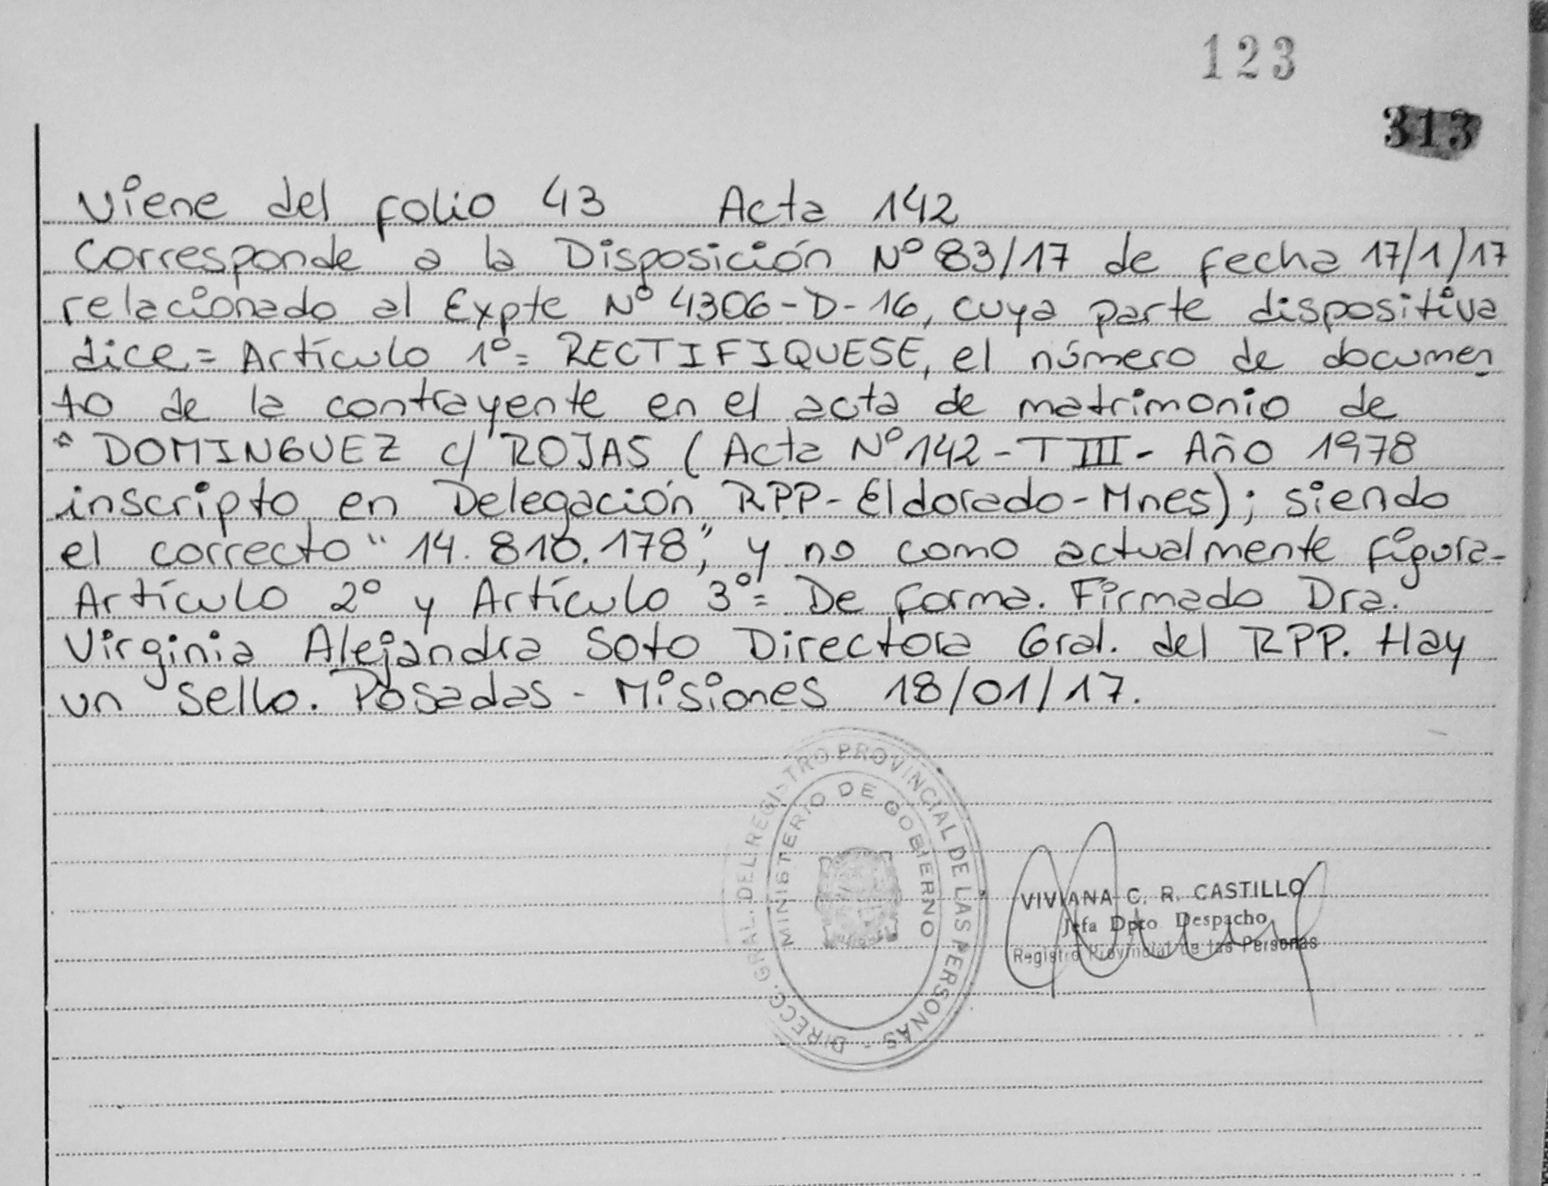 123
313
Viene del folio 43 Acta 142
Corresponde a la Disposición Nº 83/17 de fecha 17/1/17
relacionado al Expte Nº 4306-D-16, cuya parte dispositiva
dice= Artículo 1º= RECTIFIQUESE, el número de documen
to de la contrayente en el acta de matrimonio de
" DOMINGUEZ c/ ROJAS (Acta Nº 142-T III- Año 1978
inscripto en Delegación RPP-Eldorado-Mnes); siendo
el correcto "14.810.178", y no como actualmente figura-
Artículo 2º y Artículo 3º= De forma. Firmado Dra.
Virginia Alejandra Soto Directora Gral. del RPP. Hay
un sello. Posadas - Misiones 18/01/17.
DIRECC. GRAL. DEL REGISTRO PROVINCIAL DE LAS PERSONAS -
MINISTERIO DE GOBIERNO
VIVIANA C. R. CASTILLO
Jefa Dpto Despacho
Registro Provincial de las Personas